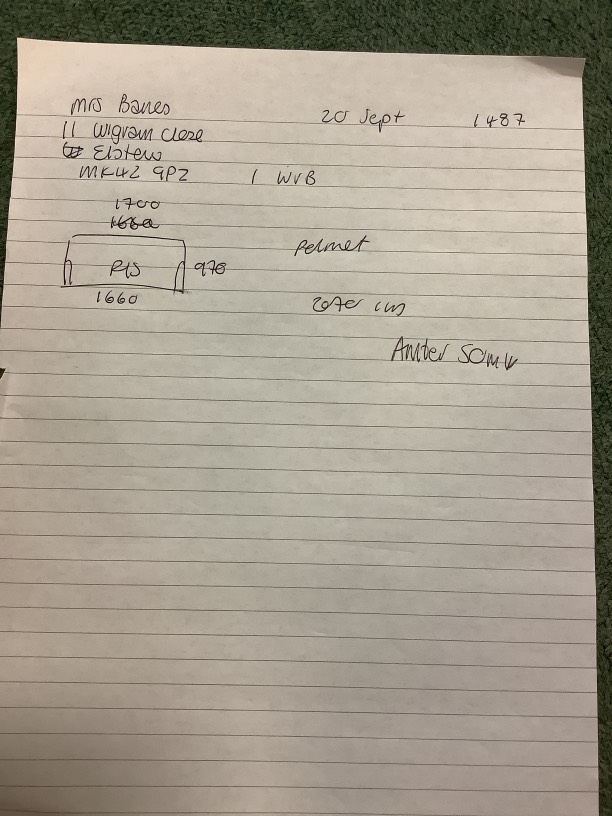 Mrs Banes
20 Sept 1487
11 Wigram Close
Elstew
MK42 9PZ
1 WVB
1700
1660
Pelmet
R/S
970
1660
2070 cm
Amber